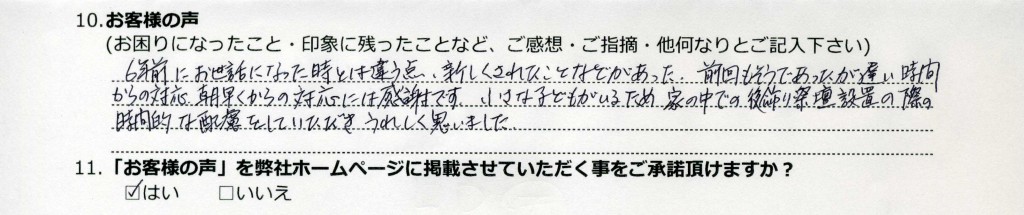 10.お客様の声
(お困りになったこと・印象に残ったことなど、ご感想・ご指摘・他何なりとご記入下さい)
6年前にお世話になった時とは違う点、新しくされたことなどがあった。前回もそうであったが遅い時間
からの対応、朝早くからの対応には感謝です。小さな子どもがいるため、家の中での後飾り祭壇設置の際の
時間的な配慮をしていただきうれしく思いました。
11.「お客様の声」を弊社ホームページに掲載させていただく事をご承諾頂けますか？
☑はい □いいえ